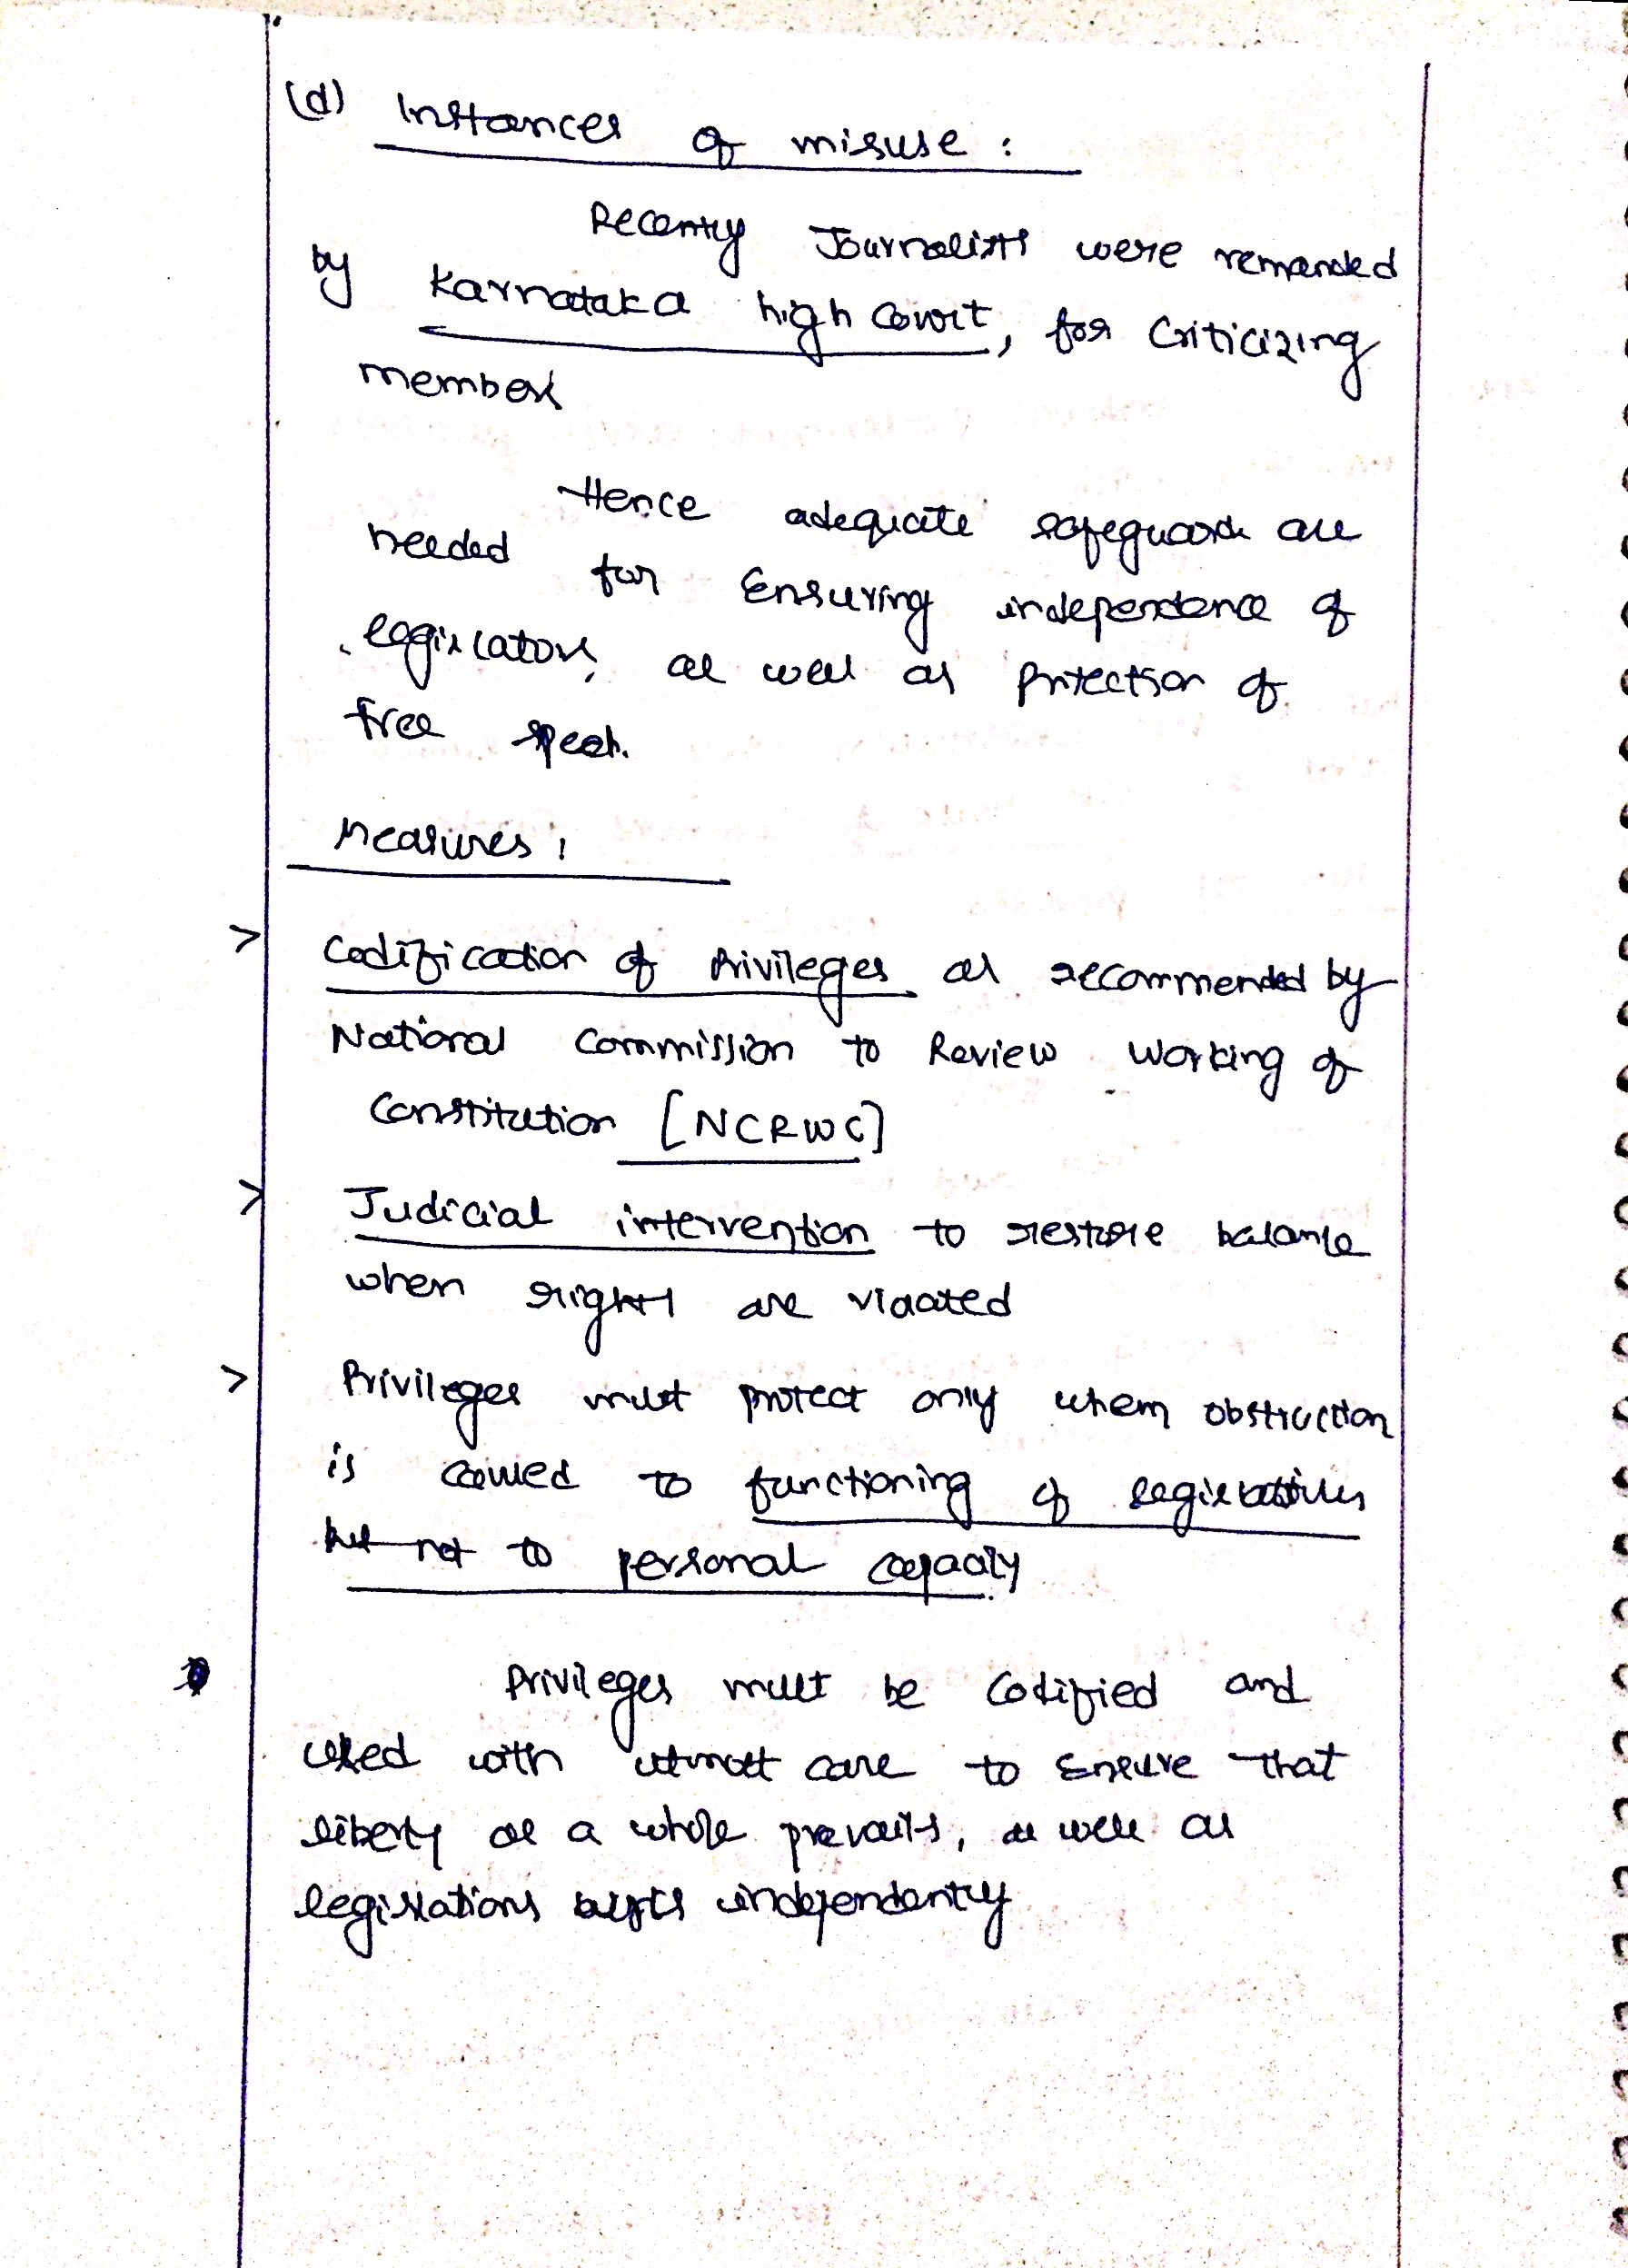 (d) Instances of misuse :
Recently Journalists were remanded
by Karnataka high Court, for Criticizing
members
Hence adequate safeguards are
needed for Ensuring independence of
legislators, as well as Protection of
free speech.
Measures :
> Codification of Privileges as recommended by
National Commission to Review Working of
Constitution [NCRWC]
> Judicial intervention to restore balance
when rights are violated
> Privileges must protect only when obstruction
is caused to functioning of legislatures
but not to personal capacity.
Privileges must be Codified and
used with utmost care to Ensure that
liberty as a whole prevails, as well as
legislations independently